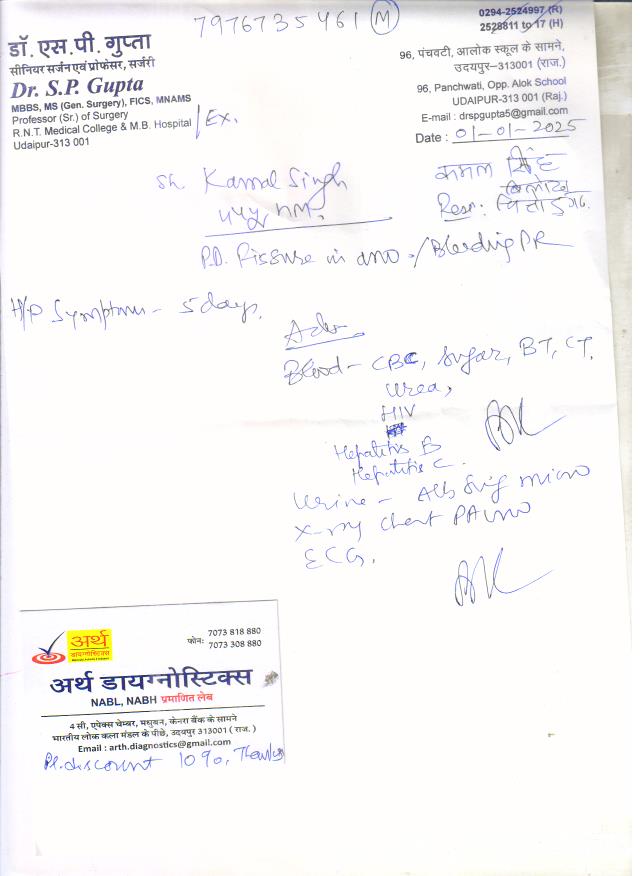 7976735461 (M)
0294-2524997 (R)
2528811 to 17 (H)
डॉ. एस.पी. गुप्ता
सीनियर सर्जन एवं प्रोफेसर, सर्जरी
Dr. S.P. Gupta
MBBS, MS (Gen. Surgery), FICS, MNAMS
Professor (Sr.) of Surgery
R.N.T. Medical College & M.B. Hospital / Ex.
Udaipur-313 001
96, पंचवटी, आलोक स्कूल के सामने,
उदयपुर–313001 (राज.)
96, Panchwati, Opp. Alok School
UDAIPUR-313 001 (Raj.)
E-mail : drspgupta5@gmail.com
Date : 01-01-2025
Sh. Kamal Singh
कमल सिंह
Resi:
P.D. Fissure in ano / Bleeding PR
H/O Symptoms - 5 days.
Adv.
Blood - CBC, Sugar, BT, CT,
Urea,
HIV
Hepatitis B
Hepatitis C.
Urine - Alb Sug micro
X-ray Chest PA view
ECG.
अर्थ
डायग्नोस्टिक्स
फोन: 7073 818 880
7073 308 880
अर्थ डायग्नोस्टिक्स
NABL, NABH प्रमाणित लेब
4 सी, एपेक्स चेम्बर, मधुवन, केनरा बैंक के सामने
भारतीय लोक कला मंडल के पीछे, उदयपुर 313001 ( राज. )
Email : arth.diagnostics@gmail.com
Pl. discount 10%, Thanks